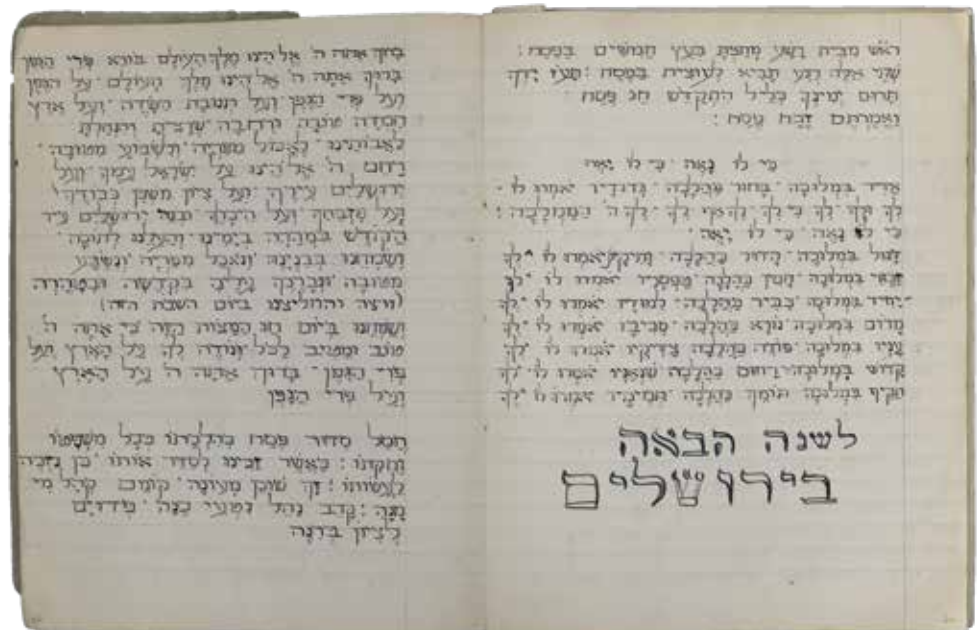 ראש מבית רשע מחצת בעץ חמושים בפסח :
שתי אלה רגע תביא לעוצית בפסח : תעז ידך
תרום ימינך כליל התקדש חג פסח
ואמרתם זבח פסח :
כי לו נאה . כי לו יאה
אדיר במלוכה . בחור כהלכה . גדודיו יאמרו לו .
לך ולך לך כי לך לך אף לך . לך ה' הממלכה :
כי לו נאה . כי לו יאה .
דגול במלוכה . הדור כהלכה . ותיקיו יאמרו לו . לך
זכאי במלוכה . חסין כהלכה טפסריו יאמרו לו . לך
יחיד במלוכה כביר כהלכה . למודיו יאמרו לו . לך
מרום במלוכה . נורא כהלכה . סביביו יאמרו לו . לך
עניו במלוכה . פודה כהלכה צדיקיו יאמרו לו . לך
קדוש במלוכה . רחום כהלכה שנאניו יאמרו לו . לך
תקיף במלוכה תומך כהלכה . תמימיו יאמרו לו . לך
לשנה הבאה
בירושלים
ברוך אתה ה' אלהינו מלך העולם בורא פרי הגפן
ברוך אתה ה' אלהינו מלך העולם . על הגפן
ועל פרי הגפן ועל תנובת השדה . ועל ארץ
חמדה טובה ורחבה שרצית והנחלת
לאבותינו . לאכול מפריה ולשבוע מטובה .
רחם ה' אלהינו על ישראל עמך ועל
ירושלים עירך . ועל ציון משכן כבודך .
ועל מזבחך ועל היכלך . ובנה ירושלים עיר
הקודש במהרה בימינו והעלנו לתוכה
ושמחנו בבנינה ונאכל מפריה . ונשבע
מטובה ונברכך עליה בקדשה ובטהרה
(ורצה והחליצנו ביום השבת הזה)
ושמחנו ביום חג המצות הזה כי אתה ה'
טוב ומטיב לכל ונודה לך על הארץ ועל
פרי הגפן . ברוך אתה ה' על הארץ
ועל פרי הגפן
חסל סדור פסח כהלכתו ככל משפטו
וחקתו : כאשר זכינו לסדר אותו . כן נזכה
לעשותו : זך שוכן מעונה . קומם קהל מי
מנה : קרב נהל נטעי כנה . פדוים
לציון ברנה